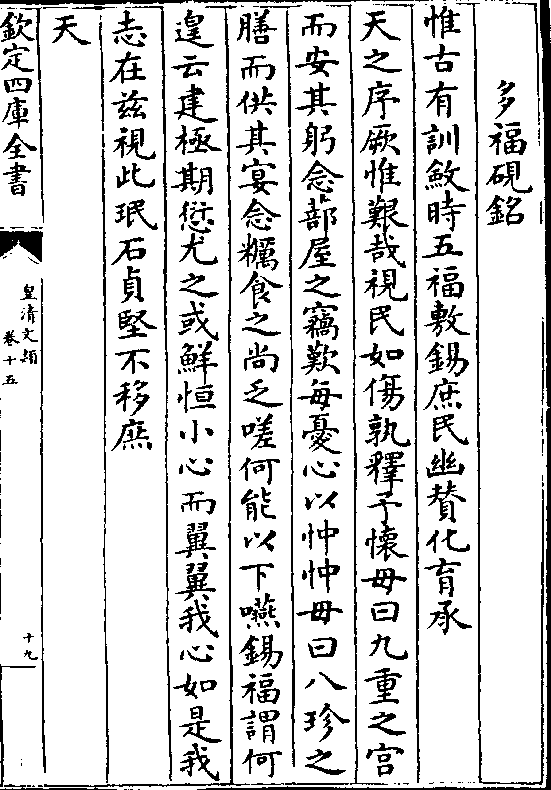 多福硯銘
惟古有訓斂時五福敷錫庶民幽賛化育承
天之序厥惟艱哉視民如傷孰釋予懐毋曰九重之宫
而安其躬念蔀屋之竊歎每憂心以忡忡毋曰八珍之
膳而供其宴念糲食之尚乏嗟何能以下嚥錫福謂何
遑云建極期愆尤之或鮮恒小心而翼翼我心如是我
志在兹視此珉石貞堅不移庶
天
欽定四庫全書
皇清文穎
卷十五
十九